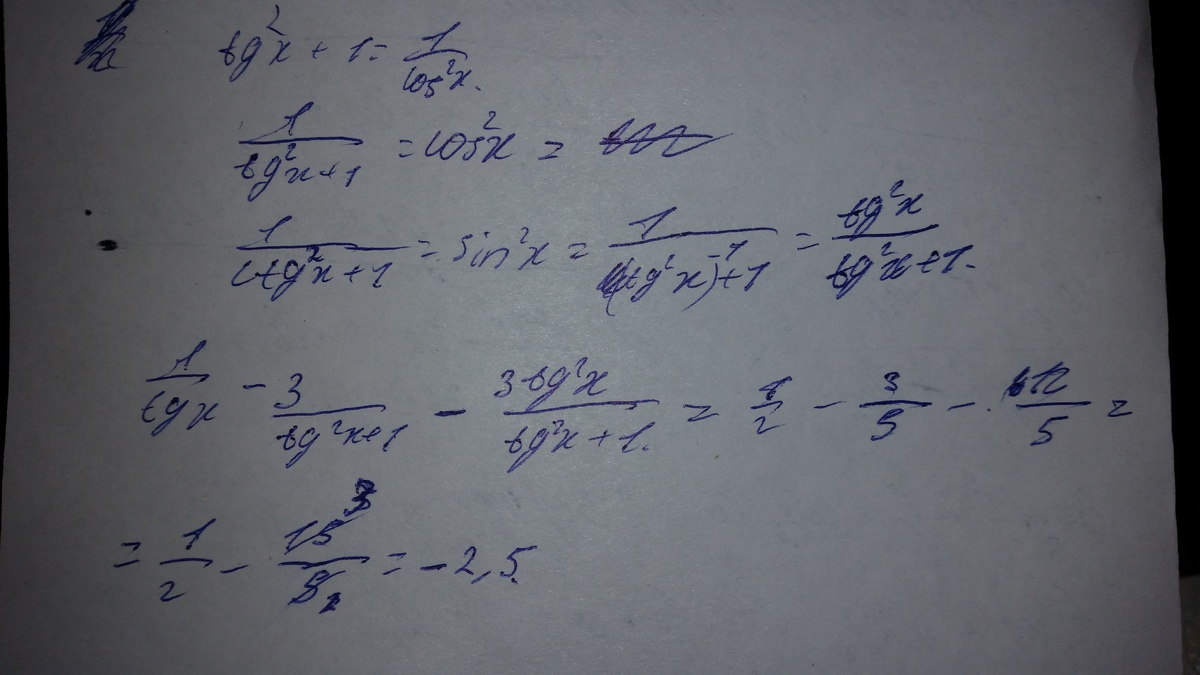 tg²x + 1 = 1/cos²x.
1/(tg²x+1) = cos²x =
1/(ctg²x+1) = sin²x = 1/((tg²x)⁻¹+1) = tg²x/(tg²x+1).
1/tgx - 3/(tg²x+1) - 3tg²x/(tg²x+1). = 1/2 - 3/5 - 12/5 =
= 1/2 - 15/5 = -2,5.